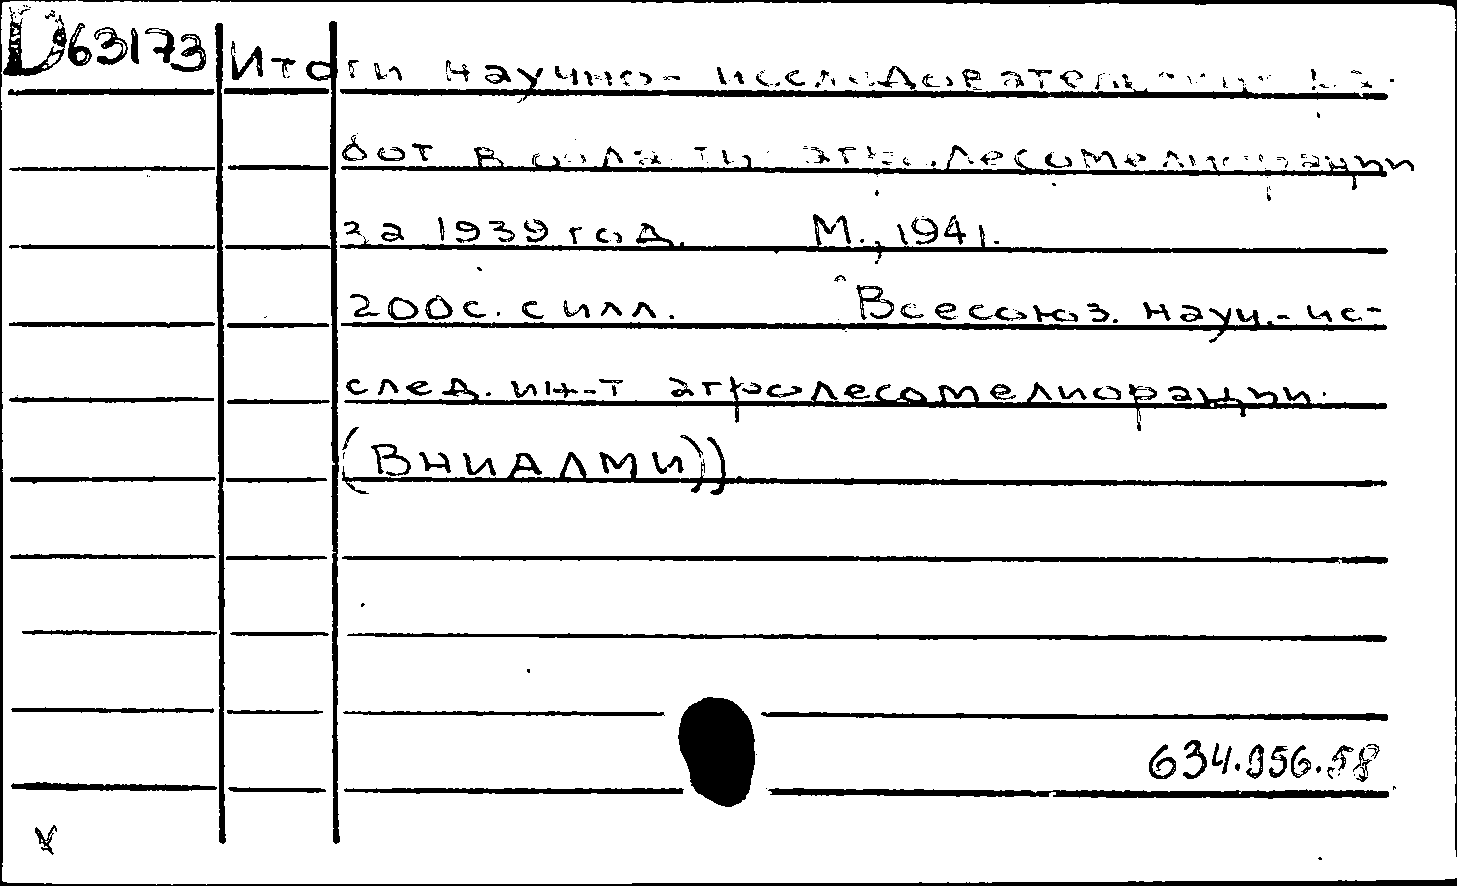 D63173 Итоги научно-исследовательских ра-
бот в области агролесомелиорации
за 1939 год. М., 1941.
200с. с илл. Всесоюз. науч.-ис-
след. ин-т агролесомелиорации.
(ВНИАЛМИ))
634.956.58